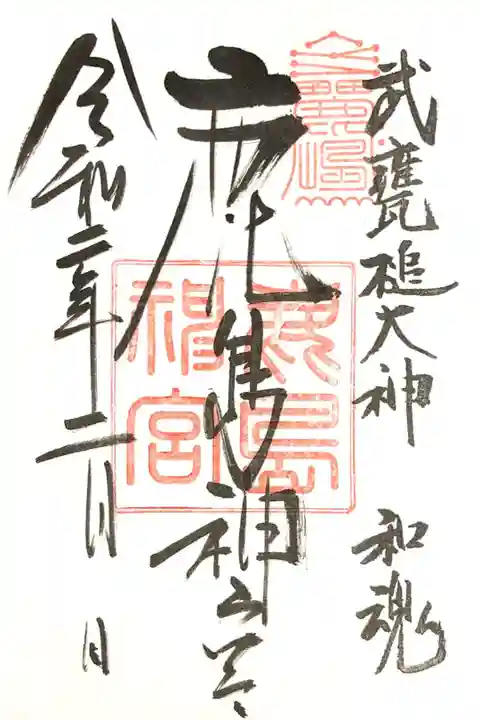 武甕槌大神 和魂
鹿島神宮
鹿島神宮
令和二年二月 日